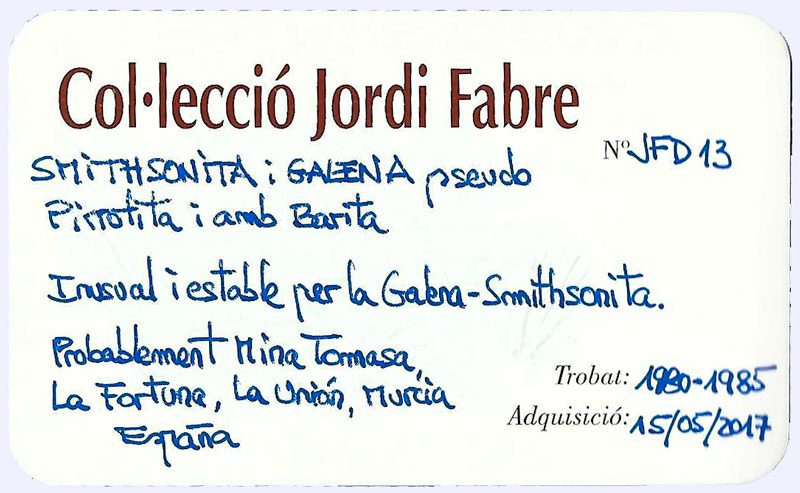 Col·lecció Jordi Fabre
Nº JFD13
SMiTHSONiTA i GALENA pseudo
Pirrotita i amb Barita
Inusual i estable per la Galena-Smithsonita.
Probablement Mina Tomasa,
La Fortuna, La Unión, Murcia
España
Trobat: 1980-1985
Adquisició: 15/05/2017